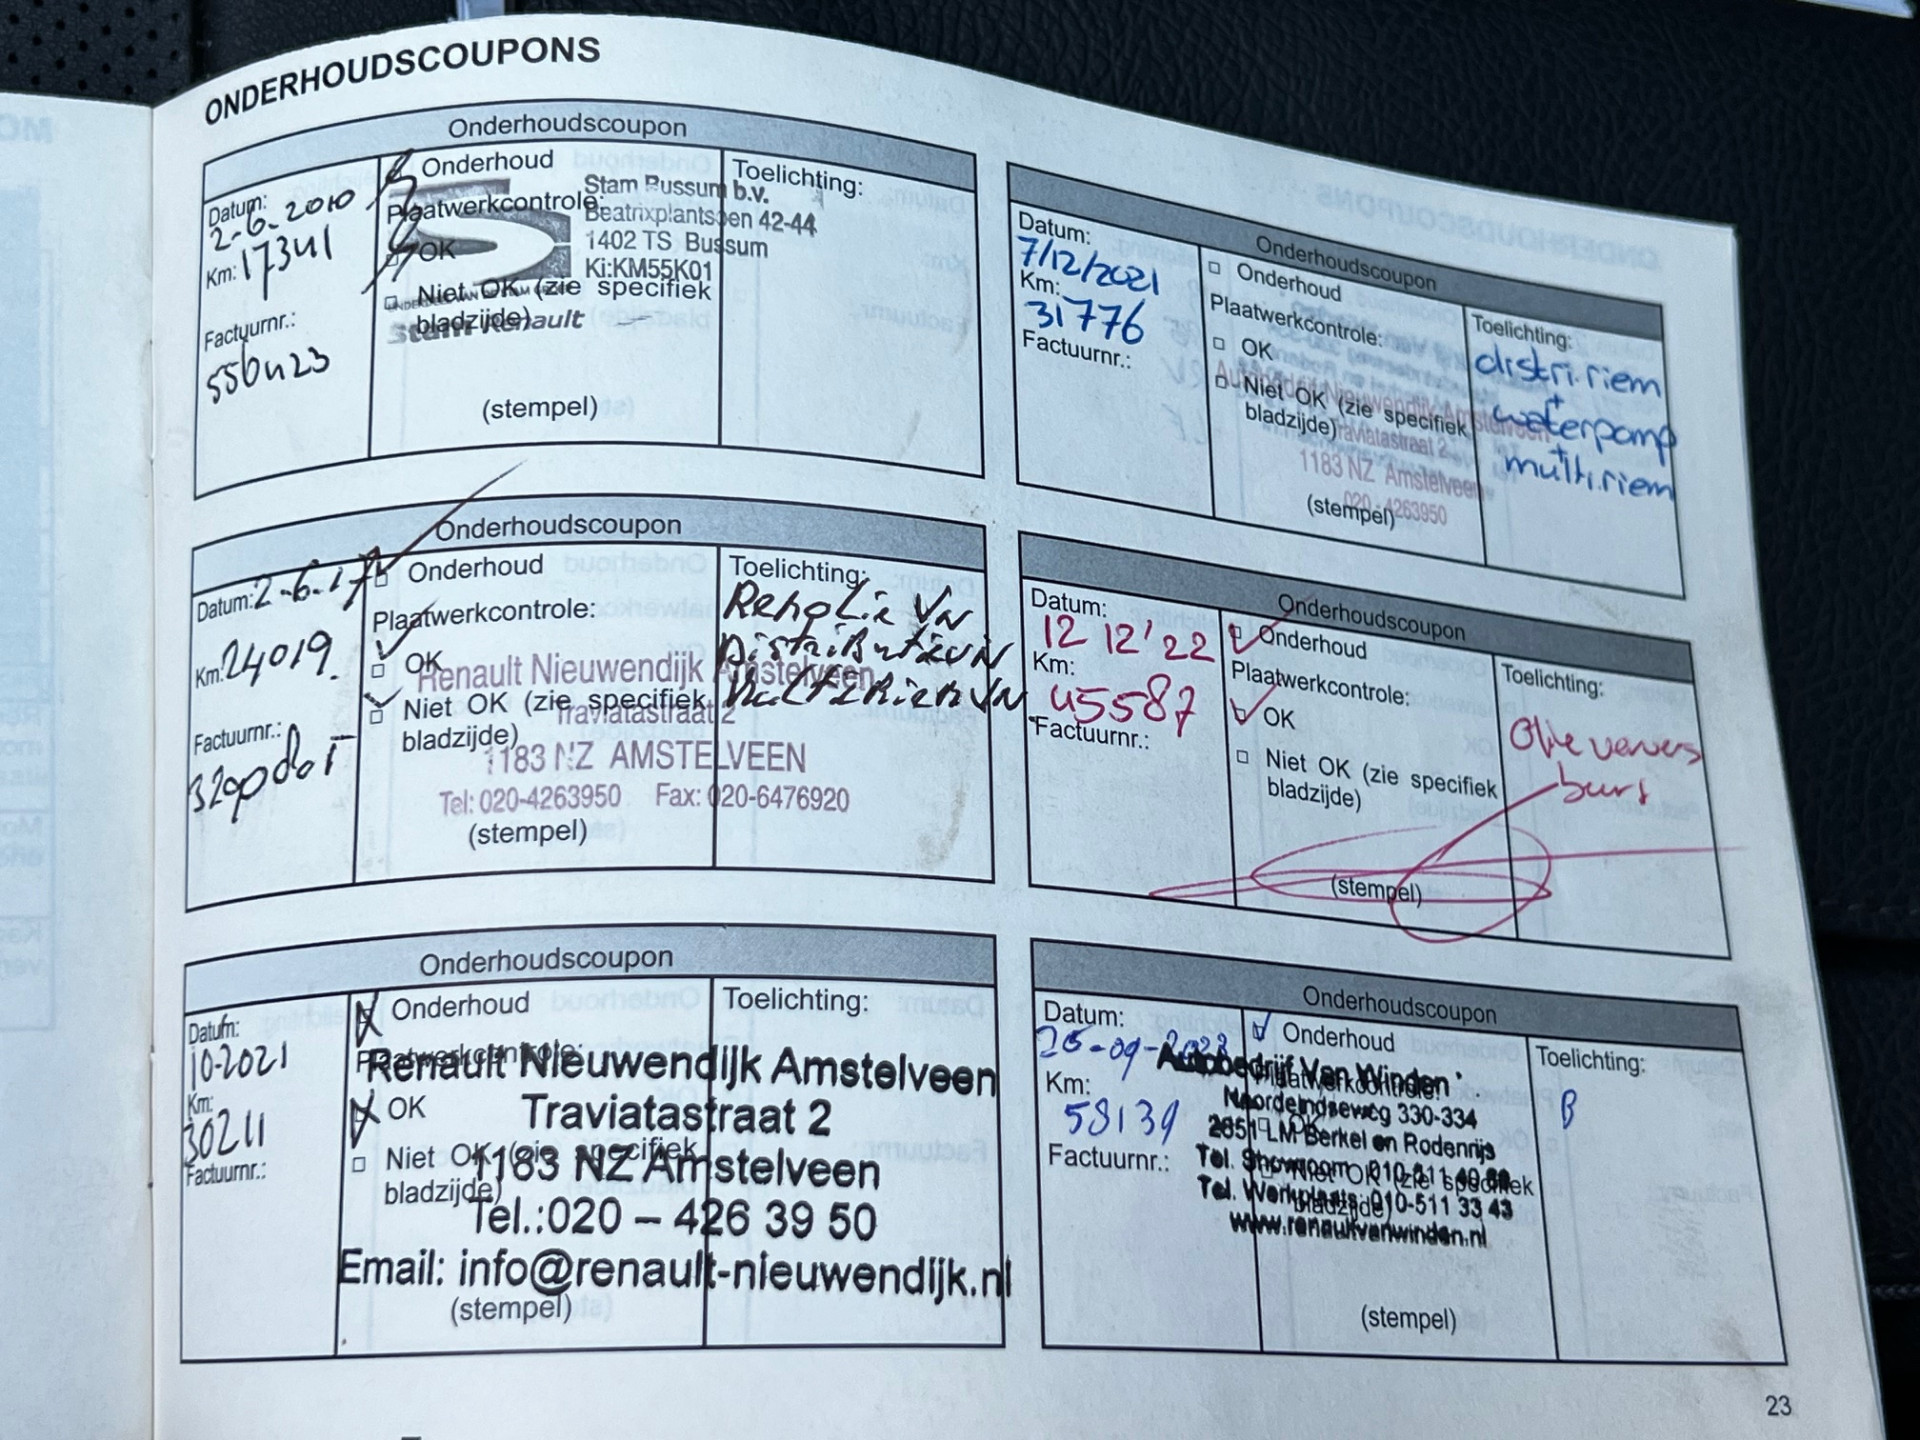 ONDERHOUDSCOUPONS
Onderhoudscoupon
Datum:
2-6-2010
Km: 17341
Factuurnr.:
Onderhoud
Plaatwerkcontrole:
OK
Niet OK (zie specifiek
bladzijde)
Stam Bussum b.v.
Beatrixplantsoen 42-44
1402 TS Bussum
Ki:KM55K01
Stam Renault
(stempel)
Toelichting:
Onderhoudscoupon
Datum: 2-6-17
Km: 24019.
Factuurnr.:
Onderhoud
Plaatwerkcontrole:
OK
Niet OK (zie specifiek
bladzijde)
Renault Nieuwendijk Amstelveen
Traviatastraat 2
1183 NZ AMSTELVEEN
Tel: 020-4263950 Fax: 020-6476920
(stempel)
Toelichting:
Onderhoudscoupon
Datum:
10-2021
Km:
30211
Factuurnr.:
Onderhoud
Plaatwerkcontrole:
OK
Niet OK (zie specifiek
bladzijde)
Renault Nieuwendijk Amstelveen
Traviatastraat 2
1183 NZ Amstelveen
Tel.:020 – 426 39 50
Email: info@renault-nieuwendijk.nl
(stempel)
Toelichting:
Onderhoudscoupon
Datum:
7/12/2021
Km:
31776
Factuurnr.:
Onderhoud
Plaatwerkcontrole:
OK
Niet OK (zie specifiek
bladzijde)
Autobedrijf Nieuwendijk Amstelveen
Traviatastraat 2
1183 NZ Amstelveen
020-4263950
(stempel)
Toelichting:
distri.riem
+
waterpomp
+
multi.riem
Onderhoudscoupon
Datum:
12 12'22
Km:
45587
Factuurnr.:
Onderhoud
Plaatwerkcontrole:
OK
Niet OK (zie specifiek
bladzijde)
(stempel)
Toelichting:
Olie ververs
burt
Onderhoudscoupon
Datum:
Km:
58139
Factuurnr.:
Onderhoud
Plaatwerkcontrole:
OK
Niet OK (zie specifiek
bladzijde)
Autobedrijf Van Winden
Noordeindseweg 330-334
2651 LM Berkel en Rodenrijs
Tel. Showroom 010-511
Tel. Werkplaats: 010-511 33 43
www.renaultvanwinden.nl
(stempel)
Toelichting:
B
23